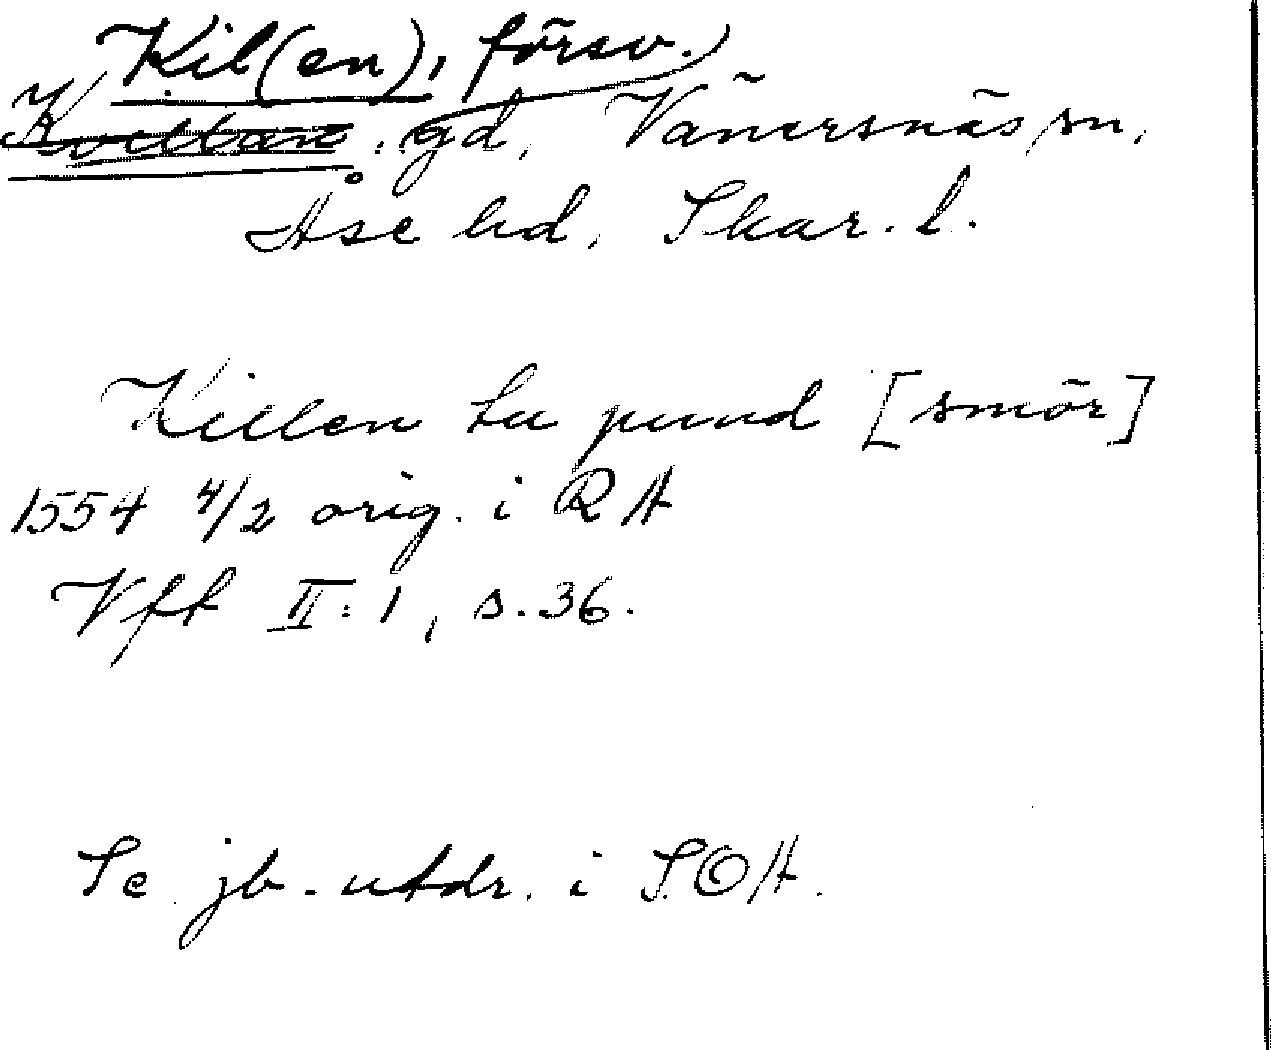 Kil(en), försv.
gd, Vänersnäs sn,
Åse hd, Skar. l.
Killen tu pund [smör]
1554 4/2 orig. i RA
Vft II:1, s. 36.
Se jb.-utdr. i SOA.